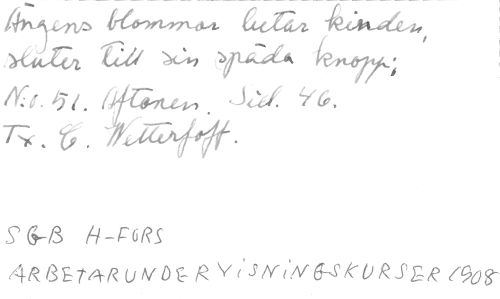 Ängens blommor lutar kinden,
sluter till sin späda knopp;
N:o. 51. Aftonen. Sid. 46.
Tx. C. Wetterhoff.
SGB H-FORS
ARBETARUNDERVISNINGSKURSER 1908